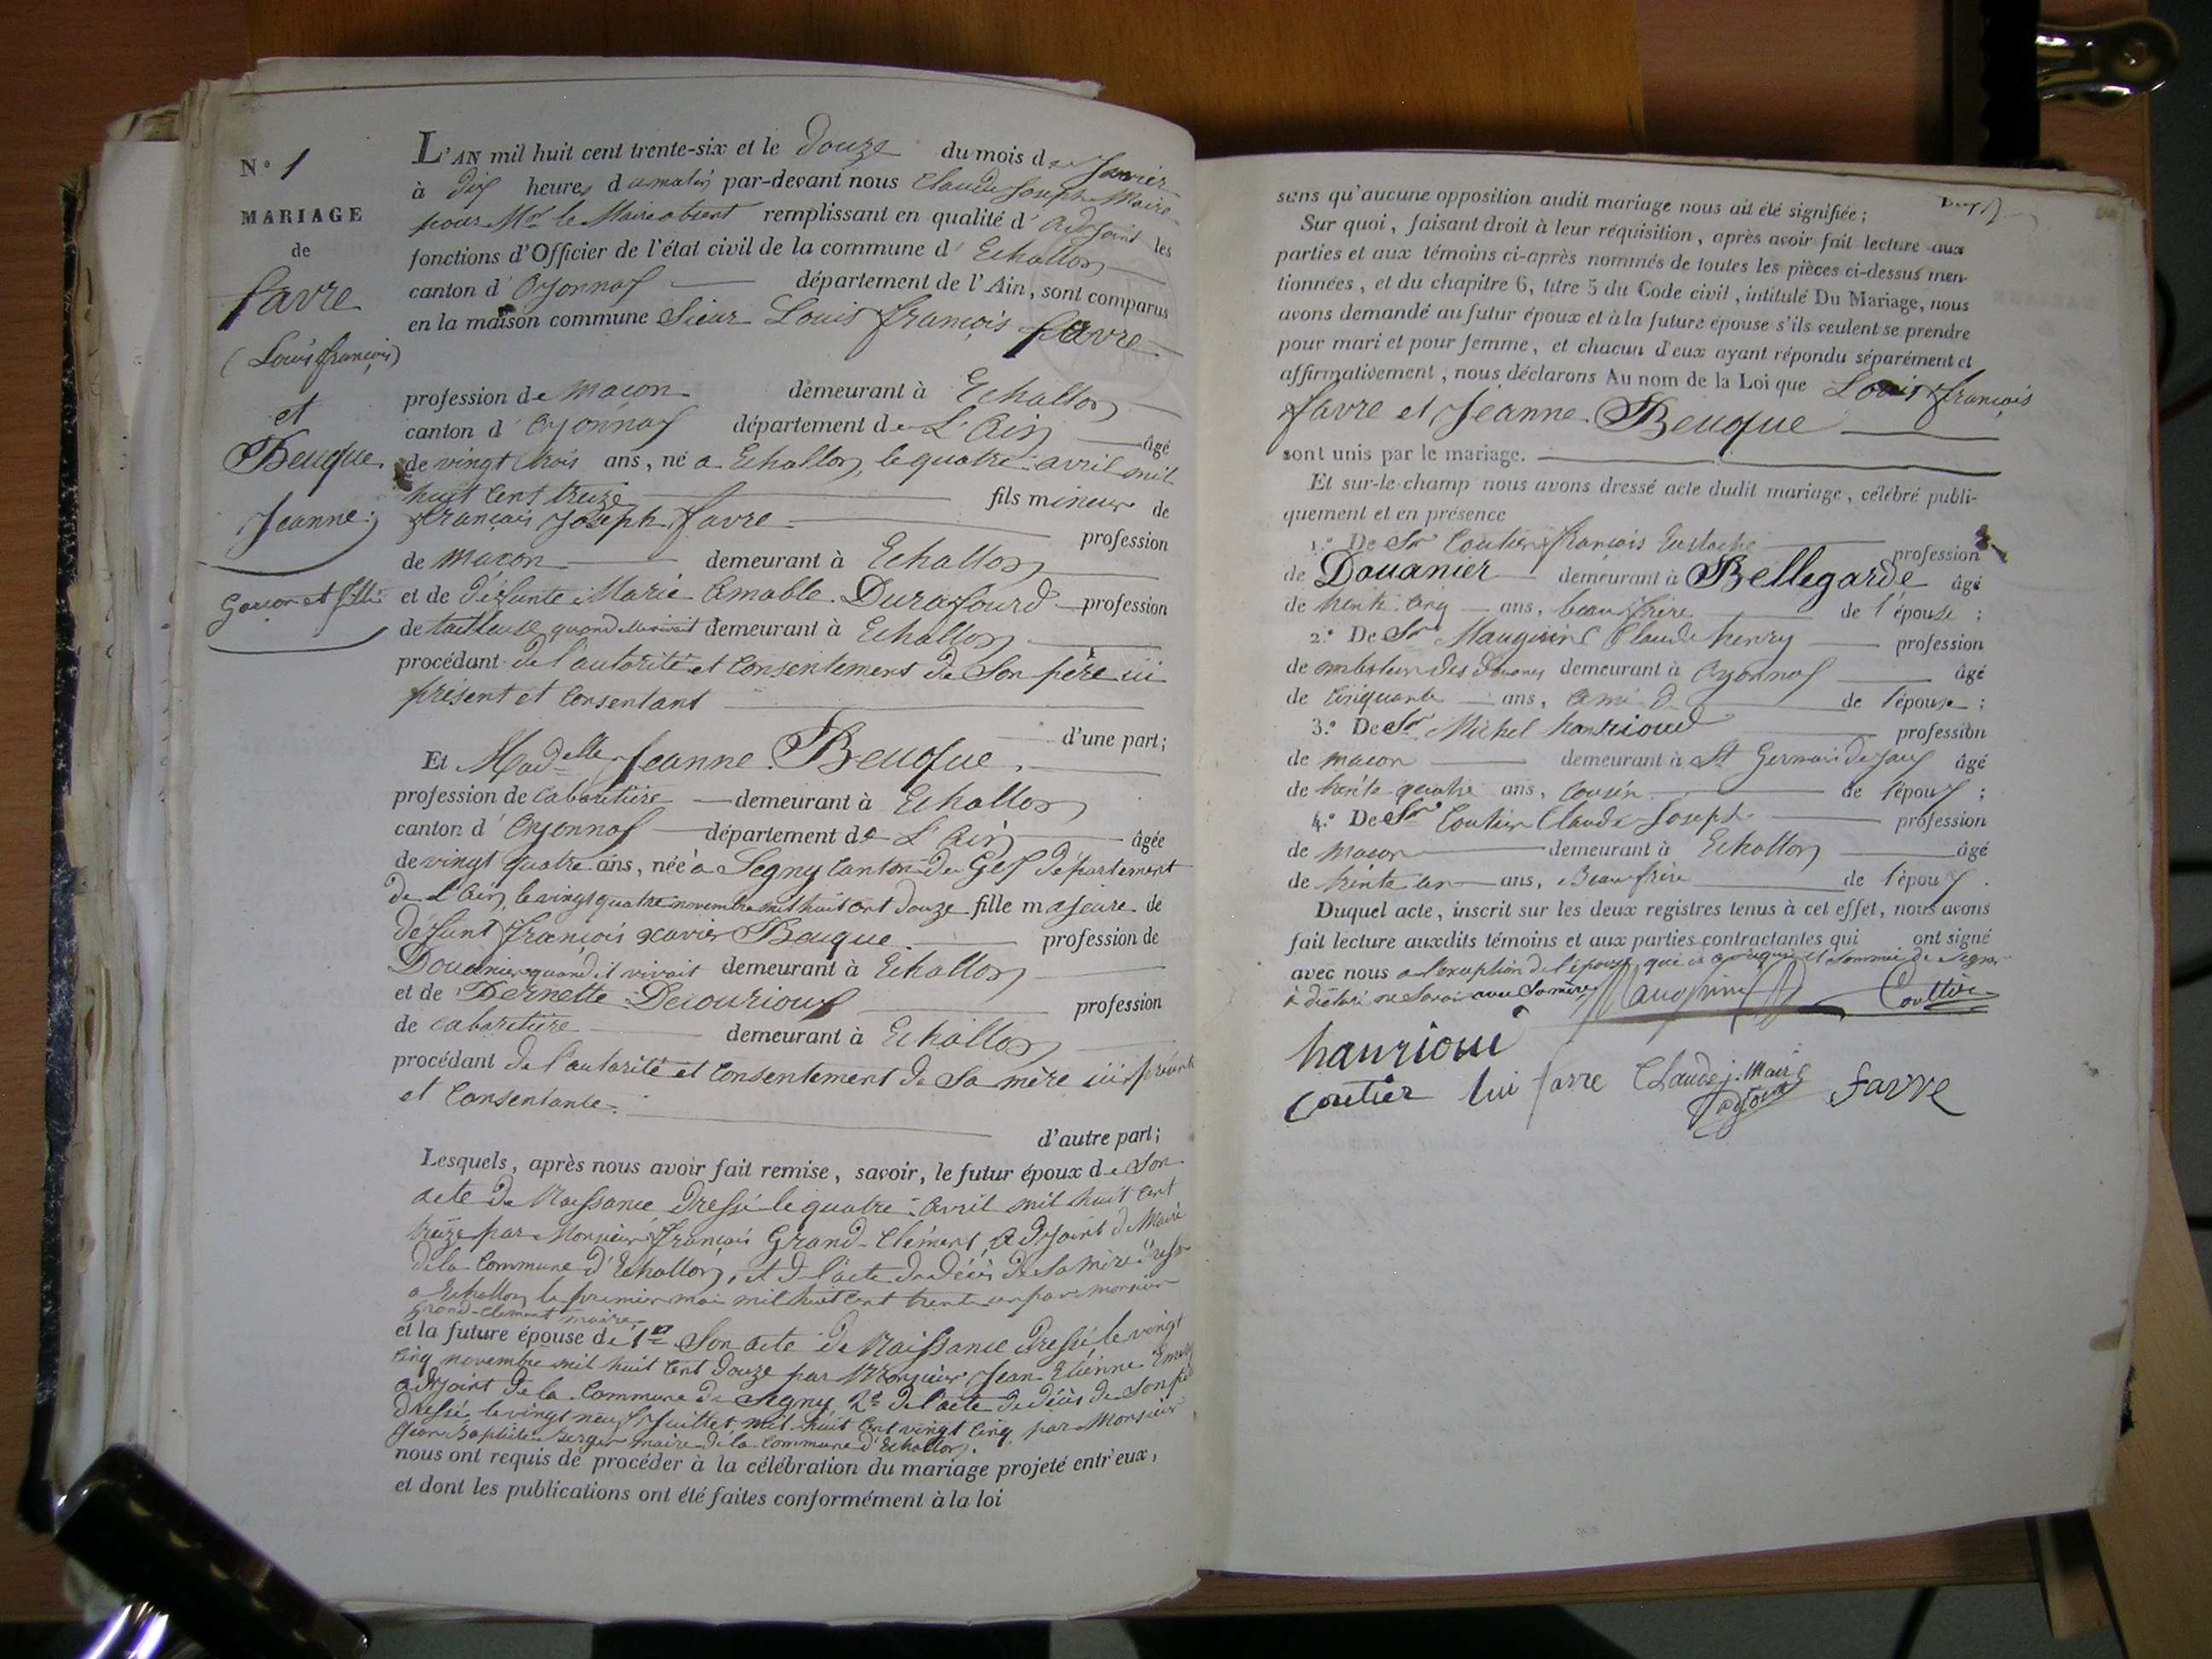 N.° 1
MARIAGE
de
favre
(Louis françois)
et
Beuque
Jeanne;
Garçon et fille
L'AN mil huit cent trente-six et le Douze du mois de Janvier
à dix heures du matin par-devant nous Claude Joseph Maire
pour Mr le Maire absent remplissant en qualité d'adjoint les
fonctions d'Officier de l'état civil de la commune d'Echallon
canton d'Oyonnax département de l'Ain, sont comparus
en la maison commune Sieur Louis françois favre
profession de macon demeurant à Echallon
canton d'Oyonnax département de L'Ain âgé
de vingt trois ans, né a Echallon, le quatre avril mil
huit cent treize fils mineur de
françois Joseph favre profession
de macon demeurant à Echallon
et de défunte Marie Amable Durafourd profession
de tailleuse quand elle vivait demeurant à Echallon
procédant de l'autorité et consentement de Son père ici
présent et consentant
d'une part;
Et Madelle Jeanne Beuque,
profession de cabaretière demeurant à Echallon
canton d'Oyonnax département de L'Ain âgée
de vingt quatre ans, née à Segny canton de Gex département
de L'Ain, le vingt quatre novembre mil huit cent douze fille majeure de
défunt françois xavier Beuque profession de
Douanier quand il vivait demeurant à Echallon
et de Bernette Decourioux profession
de cabaretière demeurant à Echallon
procédant de l'autorité et consentement de Sa mère ici présente
et Consentante
d'autre part;
Lesquels, après nous avoir fait remise, savoir, le futur époux de Son
acte de Naissance Dressé le quatre avril mil huit cent
treize par Monsieur françois Grand-Clément, adjoint de Maire
de la Commune d'Echallon, et de l'acte de décès de Sa mère Dressé
a Echallon le premier mai mil huit cent trente un par monsieur
Grand-Clement maire
et la future épouse de 1er Son acte de Naissance dressé le vingt
cinq novembre mil huit cent douze par Monsieur Jean Etienne
adjoint de la Commune de Segny 2e de l'acte de décès de Son père
dressé le vingt neuf Juillet mil huit cent vingt cinq par Monsieur
Jean Baptiste Berger maire de la Commune d'Echallon.
nous ont requis de procéder à la célébration du mariage projeté entr'eux,
et dont les publications ont été faites conformément à la loi
sans qu'aucune opposition audit mariage nous ait été signifiée;
Sur quoi, faisant droit à leur réquisition, après avoir fait lecture aux
parties et aux témoins ci-après nommés de toutes les pièces ci-dessus men-
tionnées, et du chapitre 6, titre 5 du Code civil, intitulé Du Mariage, nous
avons demandé au futur époux et à la future épouse s'ils veulent se prendre
pour mari et pour femme, et chacun d'eux ayant répondu séparément et
affirmativement, nous déclarons Au nom de la Loi que Louis françois
favre et Jeanne Beuque
sont unis par le mariage.
Et sur-le-champ nous avons dressé acte dudit mariage, célébré publi-
quement et en présence
1.° De Sr Coutier françois Eustache profession
de Douanier demeurant à Bellegarde âgé
de trente cinq ans, beau frère de l'épouse;
2.° De Sr Maugirine Claude henry profession
de des Douanes demeurant à Oyonnax âgé
de cinquante ans, ami de l'épouse;
3.° De Sr Michel hanrioud profession
de macon demeurant à St Germain de Joux âgé
de trente quatre ans, cousin de l'époux;
4.° De Sr Coutier Claude Joseph profession
de macon demeurant à Echallon âgé
de trente un ans, Beau frère de l'époux.
Duquel acte, inscrit sur les deux registres tenus à cet effet, nous avons
fait lecture auxdits témoins et aux parties contractantes qui ont signé
avec nous a l'exception de l'épouse qui de ce requise et Sommée de Signer
à déclaré ne Savoir avec Sa mère
Coultier
hanrioui
coutier lui favre Claude j. Maire adjoint favre